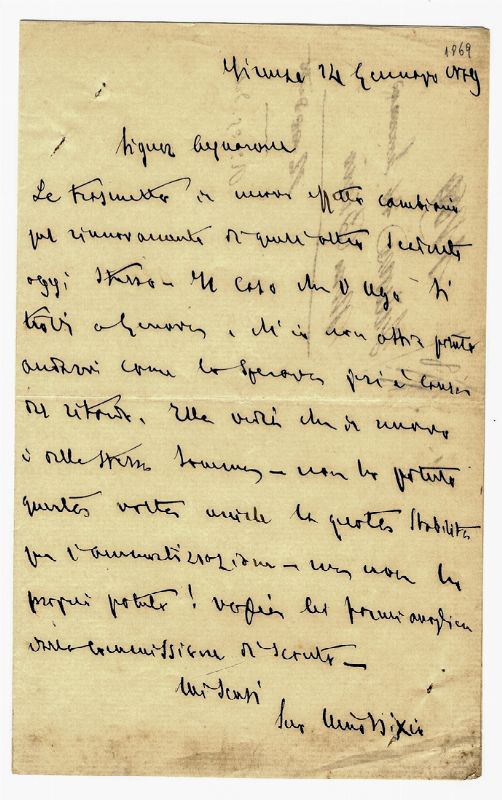 1869
Firenze 24 Gennaio 1869
Signor Acquarone
Le trasmetto di nuovo effetto cambiario
pel rinnovamento di quell'altro scadente
oggi stesso — Il caso che V. Ugo si
trovi a Genova, ch'io non abbia potuto
andarvi come lo sperava già è causa
del ritardo. Ella vedrà che di nuovo
è della stessa somma — non ho potuto
questa volta unirle la quota stabilita
per l'ammortizzazione — ma non ho
proprio potuto!
dalla commissione di sconto —
Mi scusi
Suo Nino Bixio